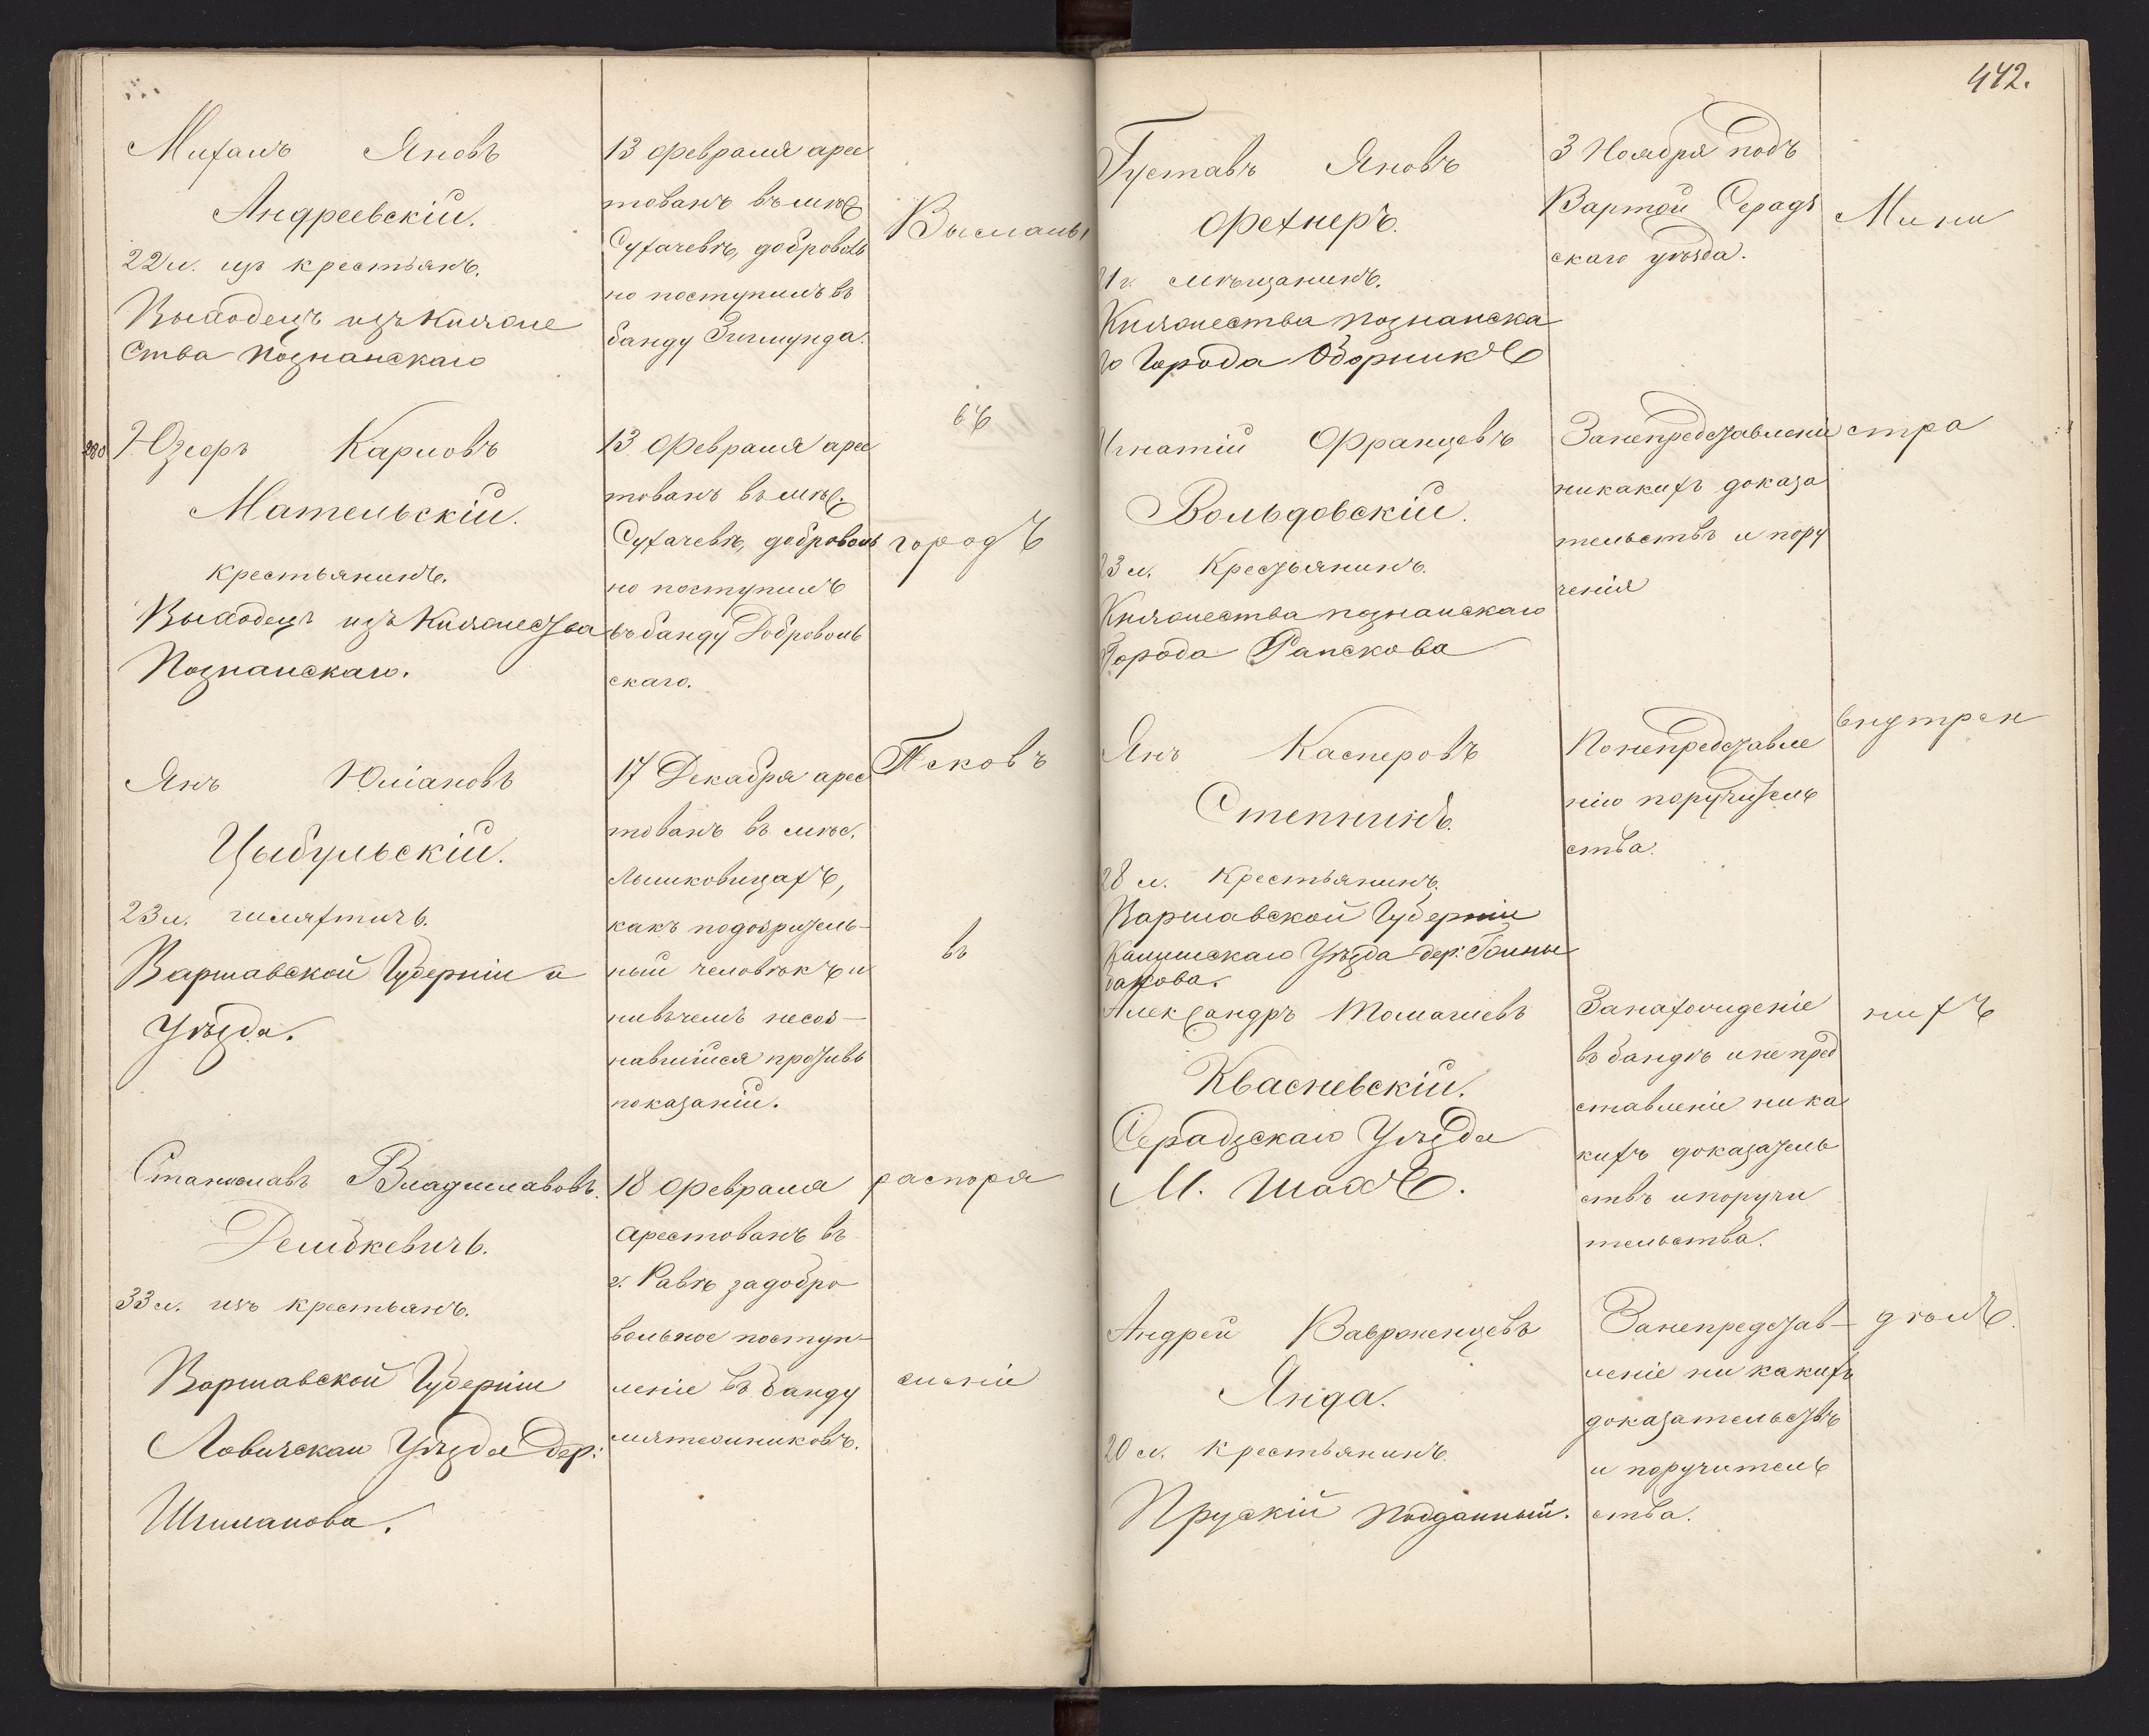 Михалъ Яновъ
Андреевскій.
22 л. изъ крестьянъ.
Выходецъ изъ Княже
ства Познанскаго
13 Февраля арес
тованъ въ мѣс
Сухачевѣ, доброволь
но поступилъ въ
банду Зигмунда.
Высланы
280
Юзефъ Карловъ
Мательскій.
крестьянинъ.
Выходецъ изъ Княжества
Познанскаго.
13 Февраля арес
тованъ въ мѣс.
Сухачевѣ, доброволь
но поступилъ
въ банду Доброволь
скаго.
въ
городъ
Янъ Юліановъ
Цыбульскій.
23 л. шляхтичъ.
Варшавской Губерніи и
Уѣзда.
17 Декабря арес
тованъ въ мѣс.
Лышковицахъ,
какъ подозритель-
ный человѣкъ и
ни въ чемъ несоз-
навшійся противъ
показаній.
Псковъ
въ
Станиславъ Владиславовъ.
Дембкевичъ.
33 л. изъ крестьянъ.
Варшавской Губерніи
Ловичскаи Уѣзда Дер:
Шиманова.
18 Февраля
арестованъ въ
г. Равѣ за добро
вольное поступ-
леніе въ банду
мятежниковъ.
распоря
женіе
442.
Густавъ Яновъ
Фехнеръ.
21 г. мѣщанинъ.
Княжества Познанска
го Города Оборникъ
3 Ноября подъ
Вартой Серадз
скаго уѣзда.
Мини
Игнатій Францевъ
Вольдовскій.
23 л. Крестьянинъ.
Княжества Познанскаго
Города Рапскова
За непредставлені
никакихъ доказа
тельствъ и пору
ченія
стра
Янъ Касперовъ
Степникъ.
28 л. Крестьянинъ.
Варшавской Губерніи
Калишскаго Уѣзда дер:
По непредставле
нію поручитель
ства.
внутрен
Александръ Томашевъ
Квасневскій.
Серадзскаго Уѣзда
М. Шадкъ.
За нахожденіе
въ бандѣ и не пред
ставленіе ника
кихъ доказатель
ствъ и поручи
тельства.
нихъ
Андрей Вавроженцевъ
Янда.
20 л. крестьянинъ.
Прускій подданный.
За непредстав-
леніе ни какихъ
доказательствъ
и поручитель
ства.
дѣлъ.